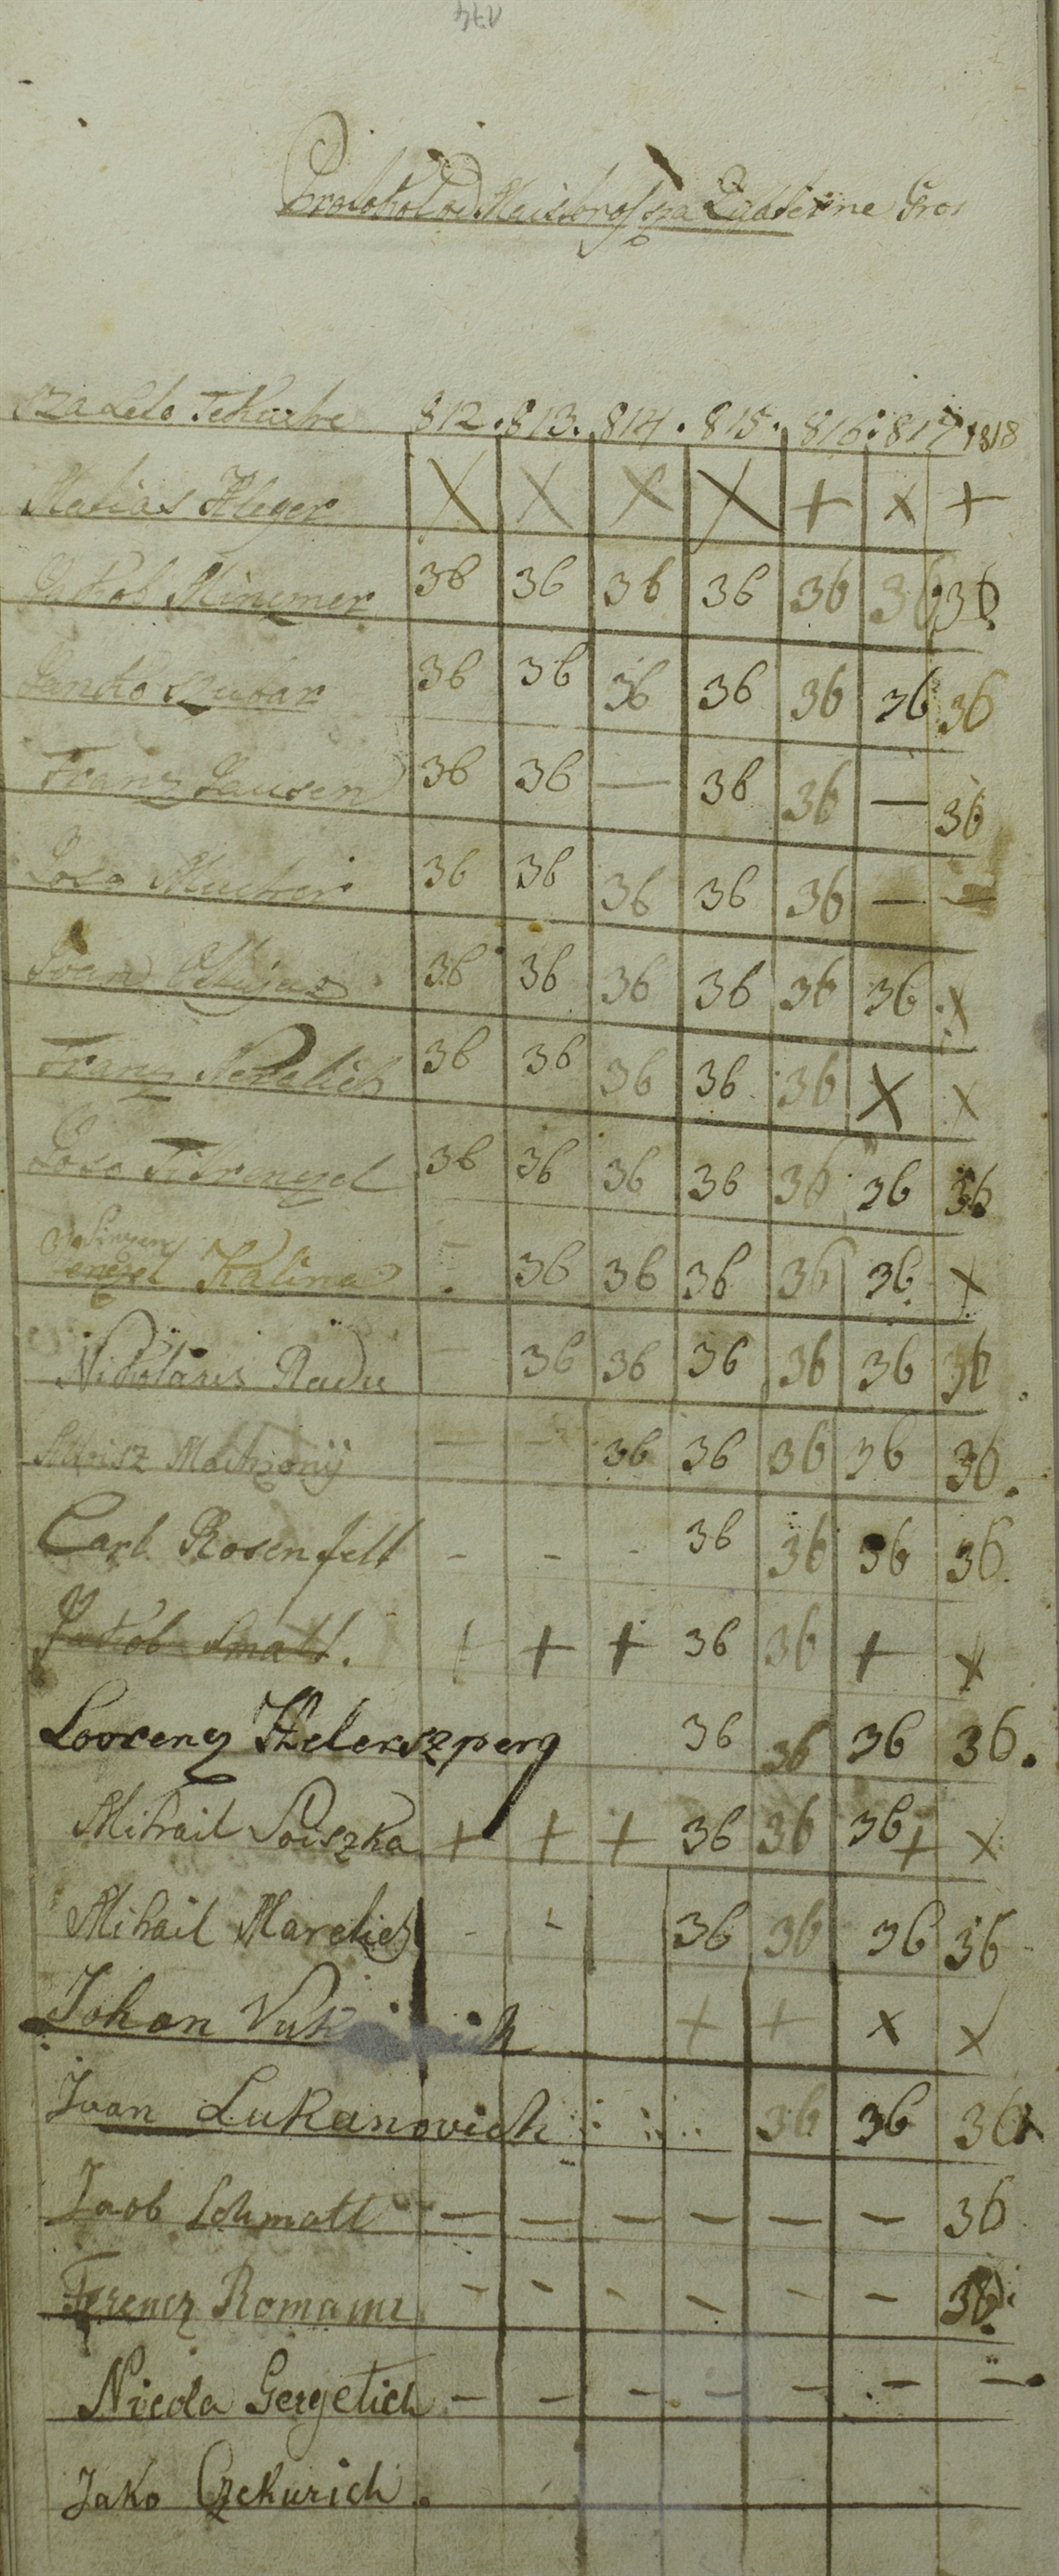 174
Protokol od Maistorof sza Quaterne Gros
sza Leto Tekuche 812. 813. 814. 815. 816. 817 1818
Matias Kleger X X X X + x +
Jakob Minemer 36 36 36 36 36 36 36
Janko 36 36 36 36 36 36 36
Franz Jausen 36 36 — 36 36 — 36
Joso 36 36 36 36 36 — —
Ivan 36 36 36 36 36 36 x
Franz 36 36 36 36 36 X x
Joso 36 36 36 36 36 36 36
Kalina 36 36 36 36 36 x
Nikolaus Radu — 36 36 36 36 36 36
— - 36 36 36 36 36.
Carl Rosenfelt - - - 36 36 36 36.
Jakob Smatt. + + + 36 36 + x
Lovrenz Kelerszperg 36 36 36 36.
Mihail Soiszka + + + 36 36 36 + x
Mihail Marelich - - 36 36 36 36
Johan Vuk + + x x
Ivan Lukanovich 36 36 36
Jacob Schmatt — — — — — — 36
Ferencz Romann - - - - - - 36.
Nicola Gergetich - - - - - - -
Jako Czekurich.